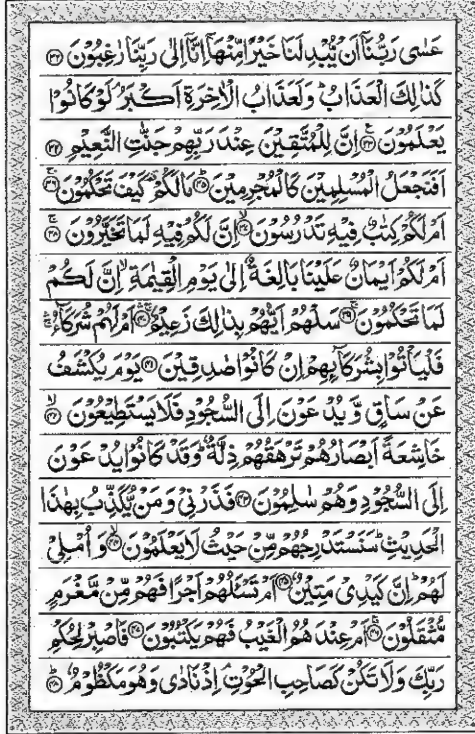 عَسٰى رَبُّنَاۤ اَنْ يُّبْدِلَنَا خَيْرًا مِّنْهَاۤ اِنَّاۤ اِلٰى رَبِّنَا رٰغِبُوْنَ ۝۳۲
كَذٰلِكَ الْعَذَابُ ؕ وَلَعَذَابُ الْاٰخِرَةِ اَكْبَرُ ۘ لَوْ كَانُوْا
يَعْلَمُوْنَ ۝۳۳ اِنَّ لِلْمُتَّقِيْنَ عِنْدَ رَبِّهِمْ جَنّٰتِ النَّعِيْمِ ۝۳۴
اَفَنَجْعَلُ الْمُسْلِمِيْنَ كَالْمُجْرِمِيْنَ ۝۳۵ مَا لَكُمْ كَيْفَ تَحْكُمُوْنَ ۝۳۶
اَمْ لَكُمْ كِتٰبٌ فِيْهِ تَدْرُسُوْنَ ۝۳۷ اِنَّ لَكُمْ فِيْهِ لَمَا تَخَيَّرُوْنَ ۝۳۸
اَمْ لَكُمْ اَيْمَانٌ عَلَيْنَا بَالِغَةٌ اِلٰى يَوْمِ الْقِيٰمَةِ ۙ اِنَّ لَكُمْ
لَمَا تَحْكُمُوْنَ ۝۳۹ سَلْهُمْ اَيُّهُمْ بِذٰلِكَ زَعِيْمٌ ۝۴۰ اَمْ لَهُمْ شُرَكَآءُ ۛ
فَلْيَاْتُوْا بِشُرَكَآئِهِمْ اِنْ كَانُوْا صٰدِقِيْنَ ۝۴۱ يَوْمَ يُكْشَفُ
عَنْ سَاقٍ وَّيُدْعَوْنَ اِلَى السُّجُوْدِ فَلَا يَسْتَطِيْعُوْنَ ۝۴۲
خَاشِعَةً اَبْصَارُهُمْ تَرْهَقُهُمْ ذِلَّةٌ ؕ وَقَدْ كَانُوْا يُدْعَوْنَ
اِلَى السُّجُوْدِ وَهُمْ سٰلِمُوْنَ ۝۴۳ فَذَرْنِيْ وَمَنْ يُّكَذِّبُ بِهٰذَا
الْحَدِيْثِ ؕ سَنَسْتَدْرِجُهُمْ مِّنْ حَيْثُ لَا يَعْلَمُوْنَ ۝۴۴ وَاُمْلِيْ
لَهُمْ ؕ اِنَّ كَيْدِيْ مَتِيْنٌ ۝۴۵ اَمْ تَسْـَٔلُهُمْ اَجْرًا فَهُمْ مِّنْ مَّغْرَمٍ
مُّثْقَلُوْنَ ۝۴۶ اَمْ عِنْدَهُمُ الْغَيْبُ فَهُمْ يَكْتُبُوْنَ ۝۴۷ فَاصْبِرْ لِحُكْمِ
رَبِّكَ وَلَا تَكُنْ كَصَاحِبِ الْحُوْتِ ۘ اِذْ نَادٰى وَهُوَ مَكْظُوْمٌ ۝۴۸